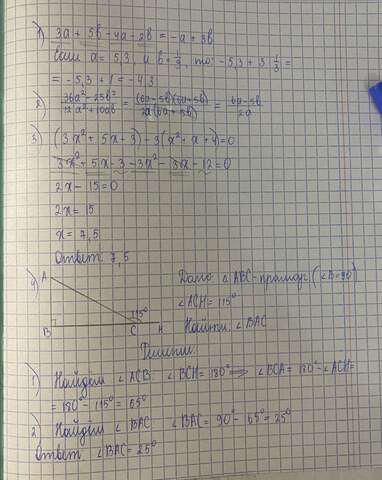 1) 3a + 5b - 4a - 2b = -a + 3b
Если a = 5,3 и b = 1/3, то: -5,3 + 3·1/3 =
= -5,3 + 1 = -4,3
2) 36a² - 25b² / 12a² + 10ab = (6a - 5b)(6a + 5b) / 2a(6a + 5b) = 6a - 5b / 2a
3) (3x² + 5x - 3) - 3(x² + x + 4) = 0
3x² + 5x - 3 - 3x² - 3x - 12 = 0
2x - 15 = 0
2x = 15
x = 7,5
Ответ: 7,5
4)
A
B
C
H
115°
Дано: ABC - прямоуг. (∠B = 90°)
∠ACH = 115°
Найти: ∠BAC
Решение
1) Найдем ∠ACB: ∠BCH = 180° ⟹ ∠BCA = 180° - ∠ACH =
= 180° - 115° = 65°
2) Найдем ∠BAC ∠BAC = 90° - 65° = 25°
Ответ: ∠BAC = 25°